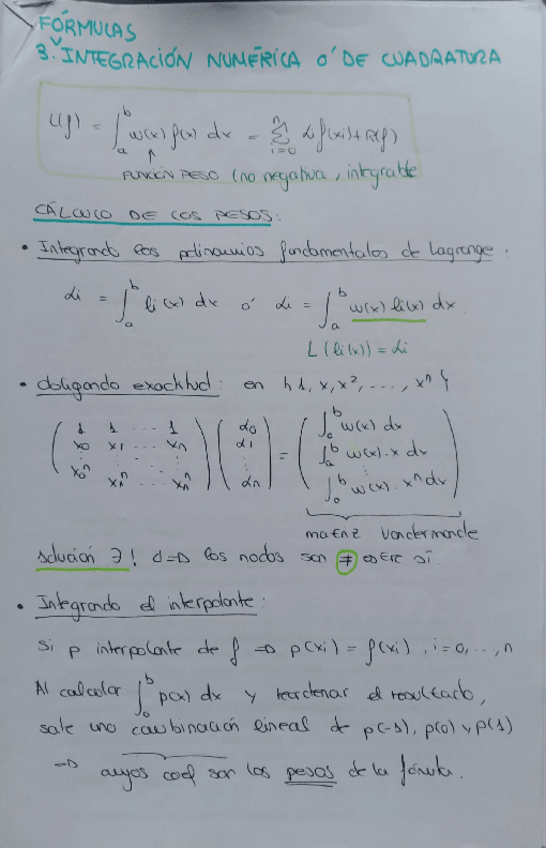 FÓRMULAS
3. INTEGRACIÓN NUMÉRICA Ó DE CUADRATURA
L(f) = ∫_a^b w(x) f(x) dx = Σ_{i=0}^n αi f(xi) + R(f)
↑
FUNCIÓN PESO (no negativa, integrable
CÁLCULO DE LOS PESOS:
• Integrando los polinomios fundamentales de Lagrange:
αi = ∫_a^b li(x) dx ó αi = ∫_a^b w(x) li(x) dx
L(li(x)) = αi
• Obligando exactitud: en {1, x, x², ..., xⁿ}
1 1 ... 1 α0 ∫_a^b w(x) dx
x0 x1 ... xn α1 = ∫_a^b w(x)·x dx
x0ⁿ x1ⁿ ... xnⁿ αn ∫_a^b w(x)·xⁿ dx
matriz Vandermonde
solución ∃! <=> los nodos son ≠ entre sí.
• Integrando el interpolante:
Si p interpolante de f => p(xi) = f(xi), i=0,...,n
Al calcular ∫_a^b p(x) dx y reordenar el resultado,
sale una combinación lineal de p(-1), p(0) y p(1)
=> cuyos coef son los pesos de la fórmula.